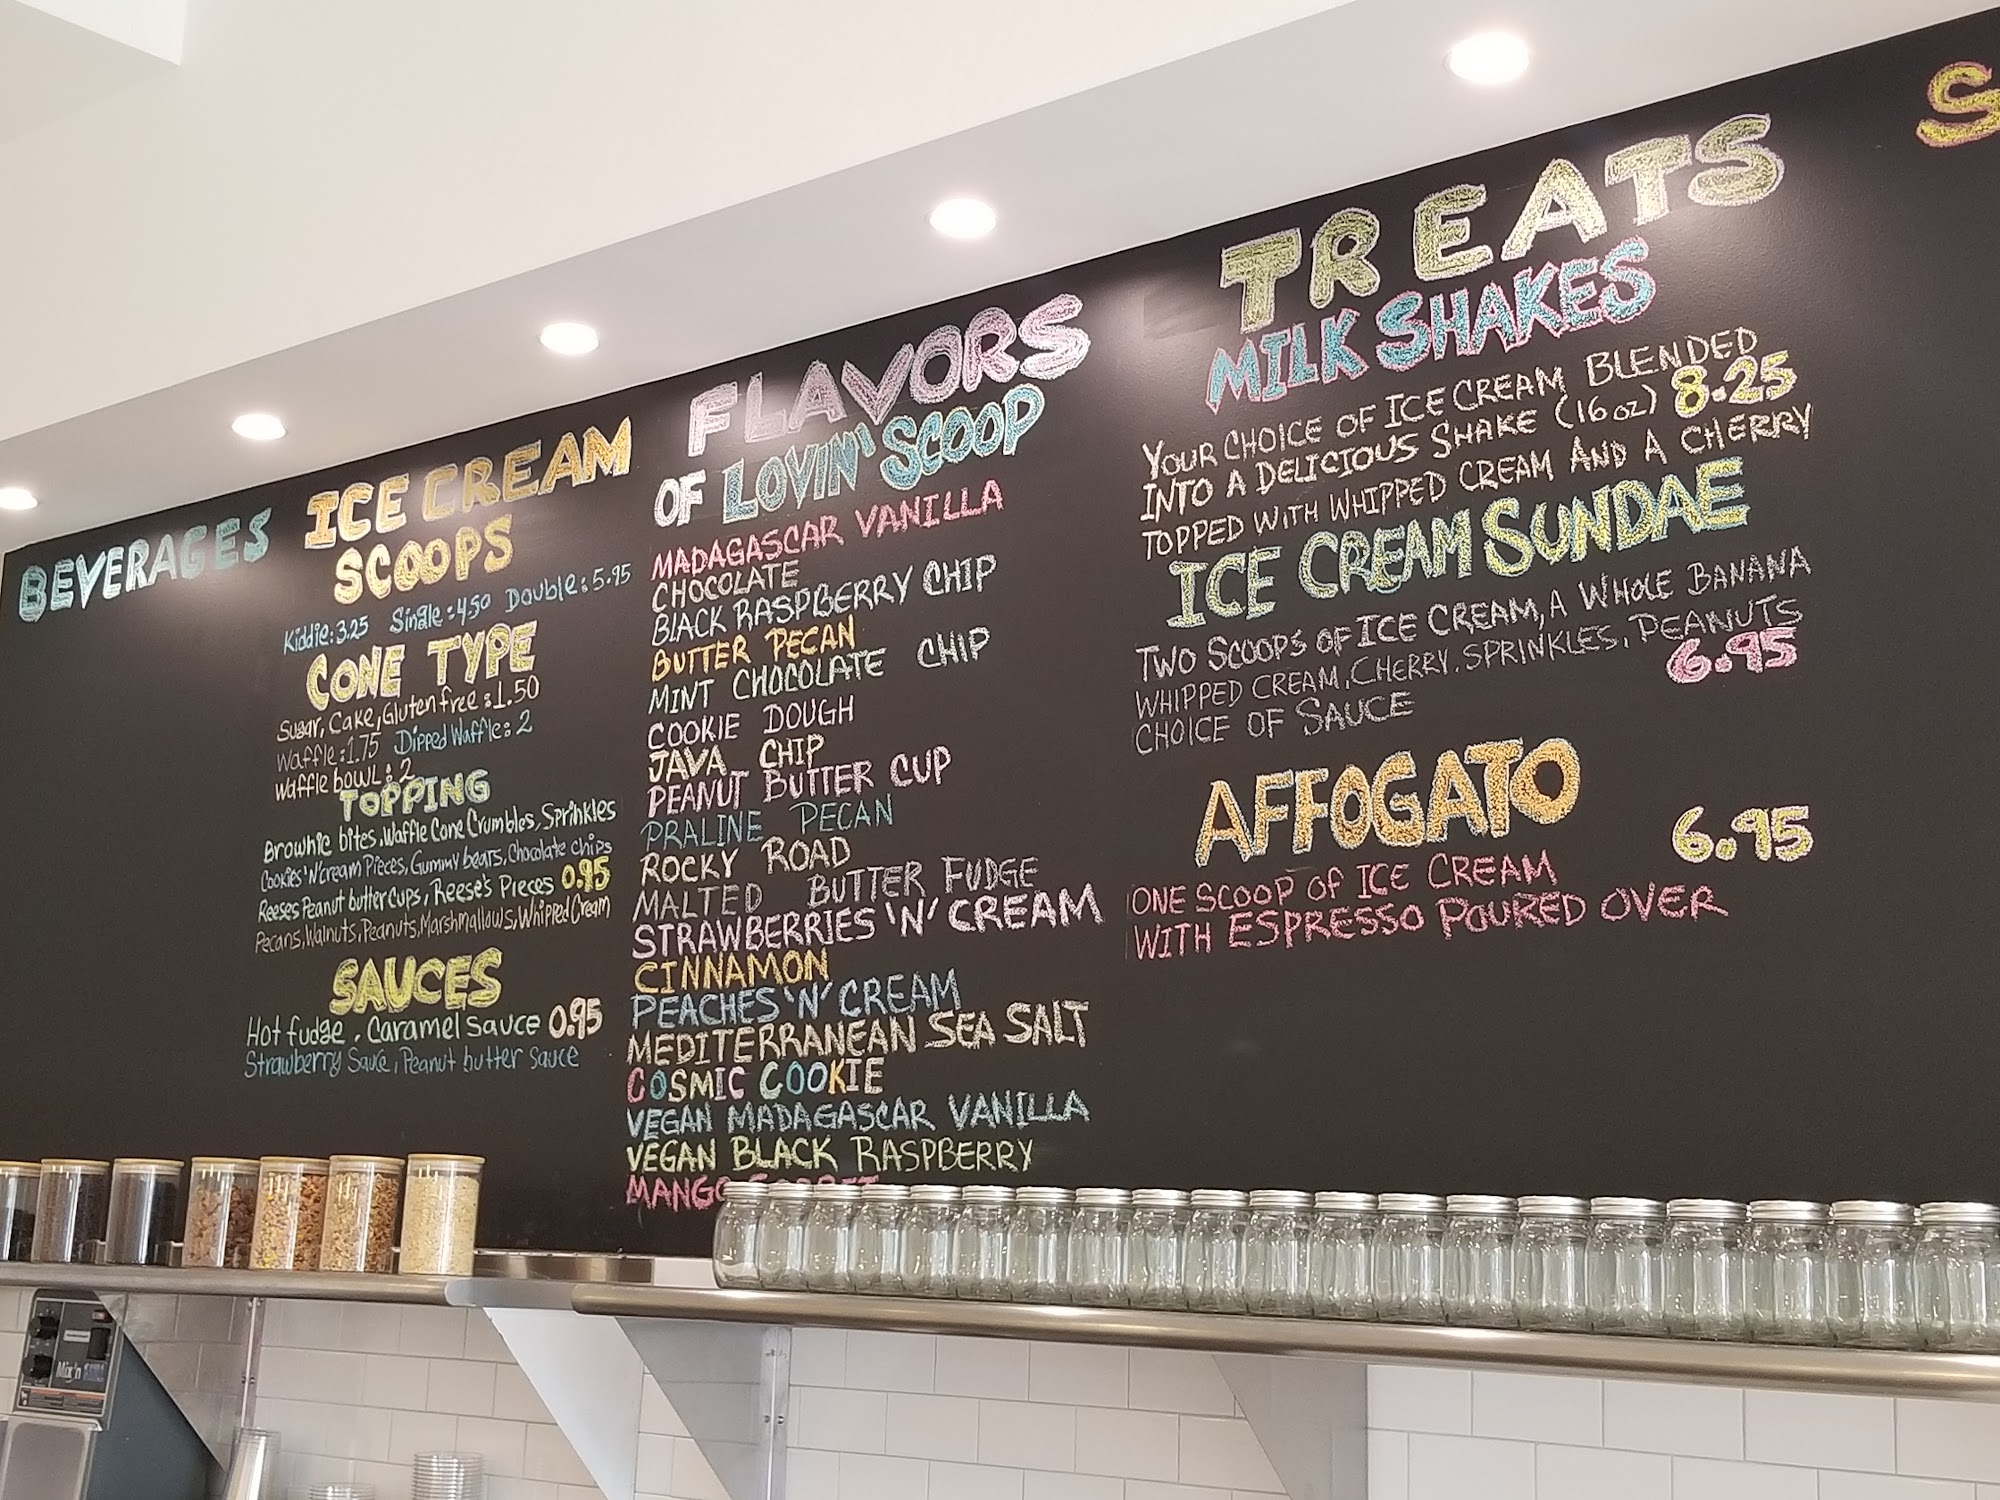 BEVERAGES
ICE CREAM
SCOOPS
Kiddie:3.25 Single:4.50 Double:5.95
CONE TYPE
Sugar, Cake, Gluten free:1.50
Waffle:1.75 Dipped Waffle:2
Waffle bowl:2
TOPPING
Brownie bites, Waffle Cone Crumbles, Sprinkles
Cookies 'N' cream Pieces, Gummy bears, Chocolate chips
Reeses Peanut butter Cups, Reese's Pieces 0.95
Pecans, Walnuts, Peanuts, Marshmallows, Whipped Cream
SAUCES
Hot fudge, Caramel sauce 0.95
Strawberry Sauce, Peanut butter sauce
FLAVORS
OF LOVIN' SCOOP
MADAGASCAR VANILLA
CHOCOLATE
BLACK RASPBERRY CHIP
BUTTER PECAN
MINT CHOCOLATE CHIP
COOKIE DOUGH
JAVA CHIP
PEANUT BUTTER CUP
PRALINE PECAN
ROCKY ROAD
MALTED BUTTER FUDGE
STRAWBERRIES 'N' CREAM
CINNAMON
PEACHES 'N' CREAM
MEDITERRANEAN SEA SALT
COSMIC COOKIE
VEGAN MADAGASCAR VANILLA
VEGAN BLACK RASPBERRY
MANGO
TREATS
MILK SHAKES
YOUR CHOICE OF ICE CREAM BLENDED
INTO A DELICIOUS SHAKE (16 oz) 8.25
TOPPED WITH WHIPPED CREAM AND A CHERRY
ICE CREAM SUNDAE
TWO SCOOPS OF ICE CREAM, A WHOLE BANANA
WHIPPED CREAM, CHERRY. SPRINKLES, PEANUTS
CHOICE OF SAUCE 6.95
AFFOGATO 6.95
ONE SCOOP OF ICE CREAM
WITH ESPRESSO POURED OVER
S
Mix'n